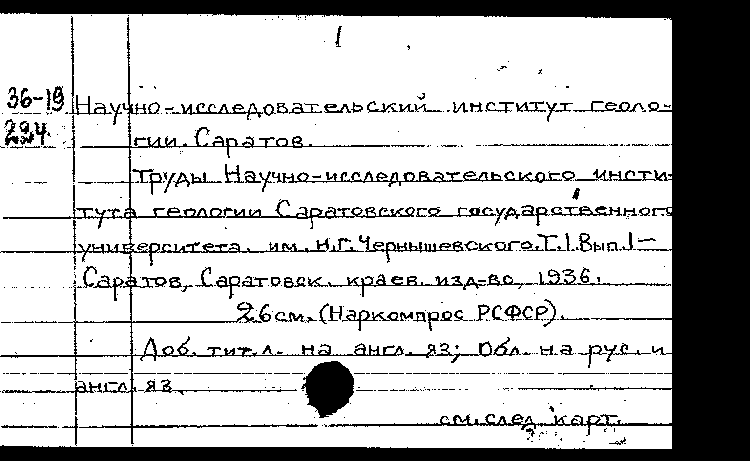 1
36-19 Научно-исследовательский институт геоло-
224 гии. Саратов.
Труды Научно-исследовательского инсти-
тута геологии Саратовского государственного
университета. им. Н.Г. Чернышевского. Т.1. Вып.1-
Саратов, Саратовск. краев. изд-во, 1936.
26см. (Наркомпрос РСФСР).
Доб. тит. л. на англ. яз; Обл. на рус. и
англ. яз.
см. след. карт.